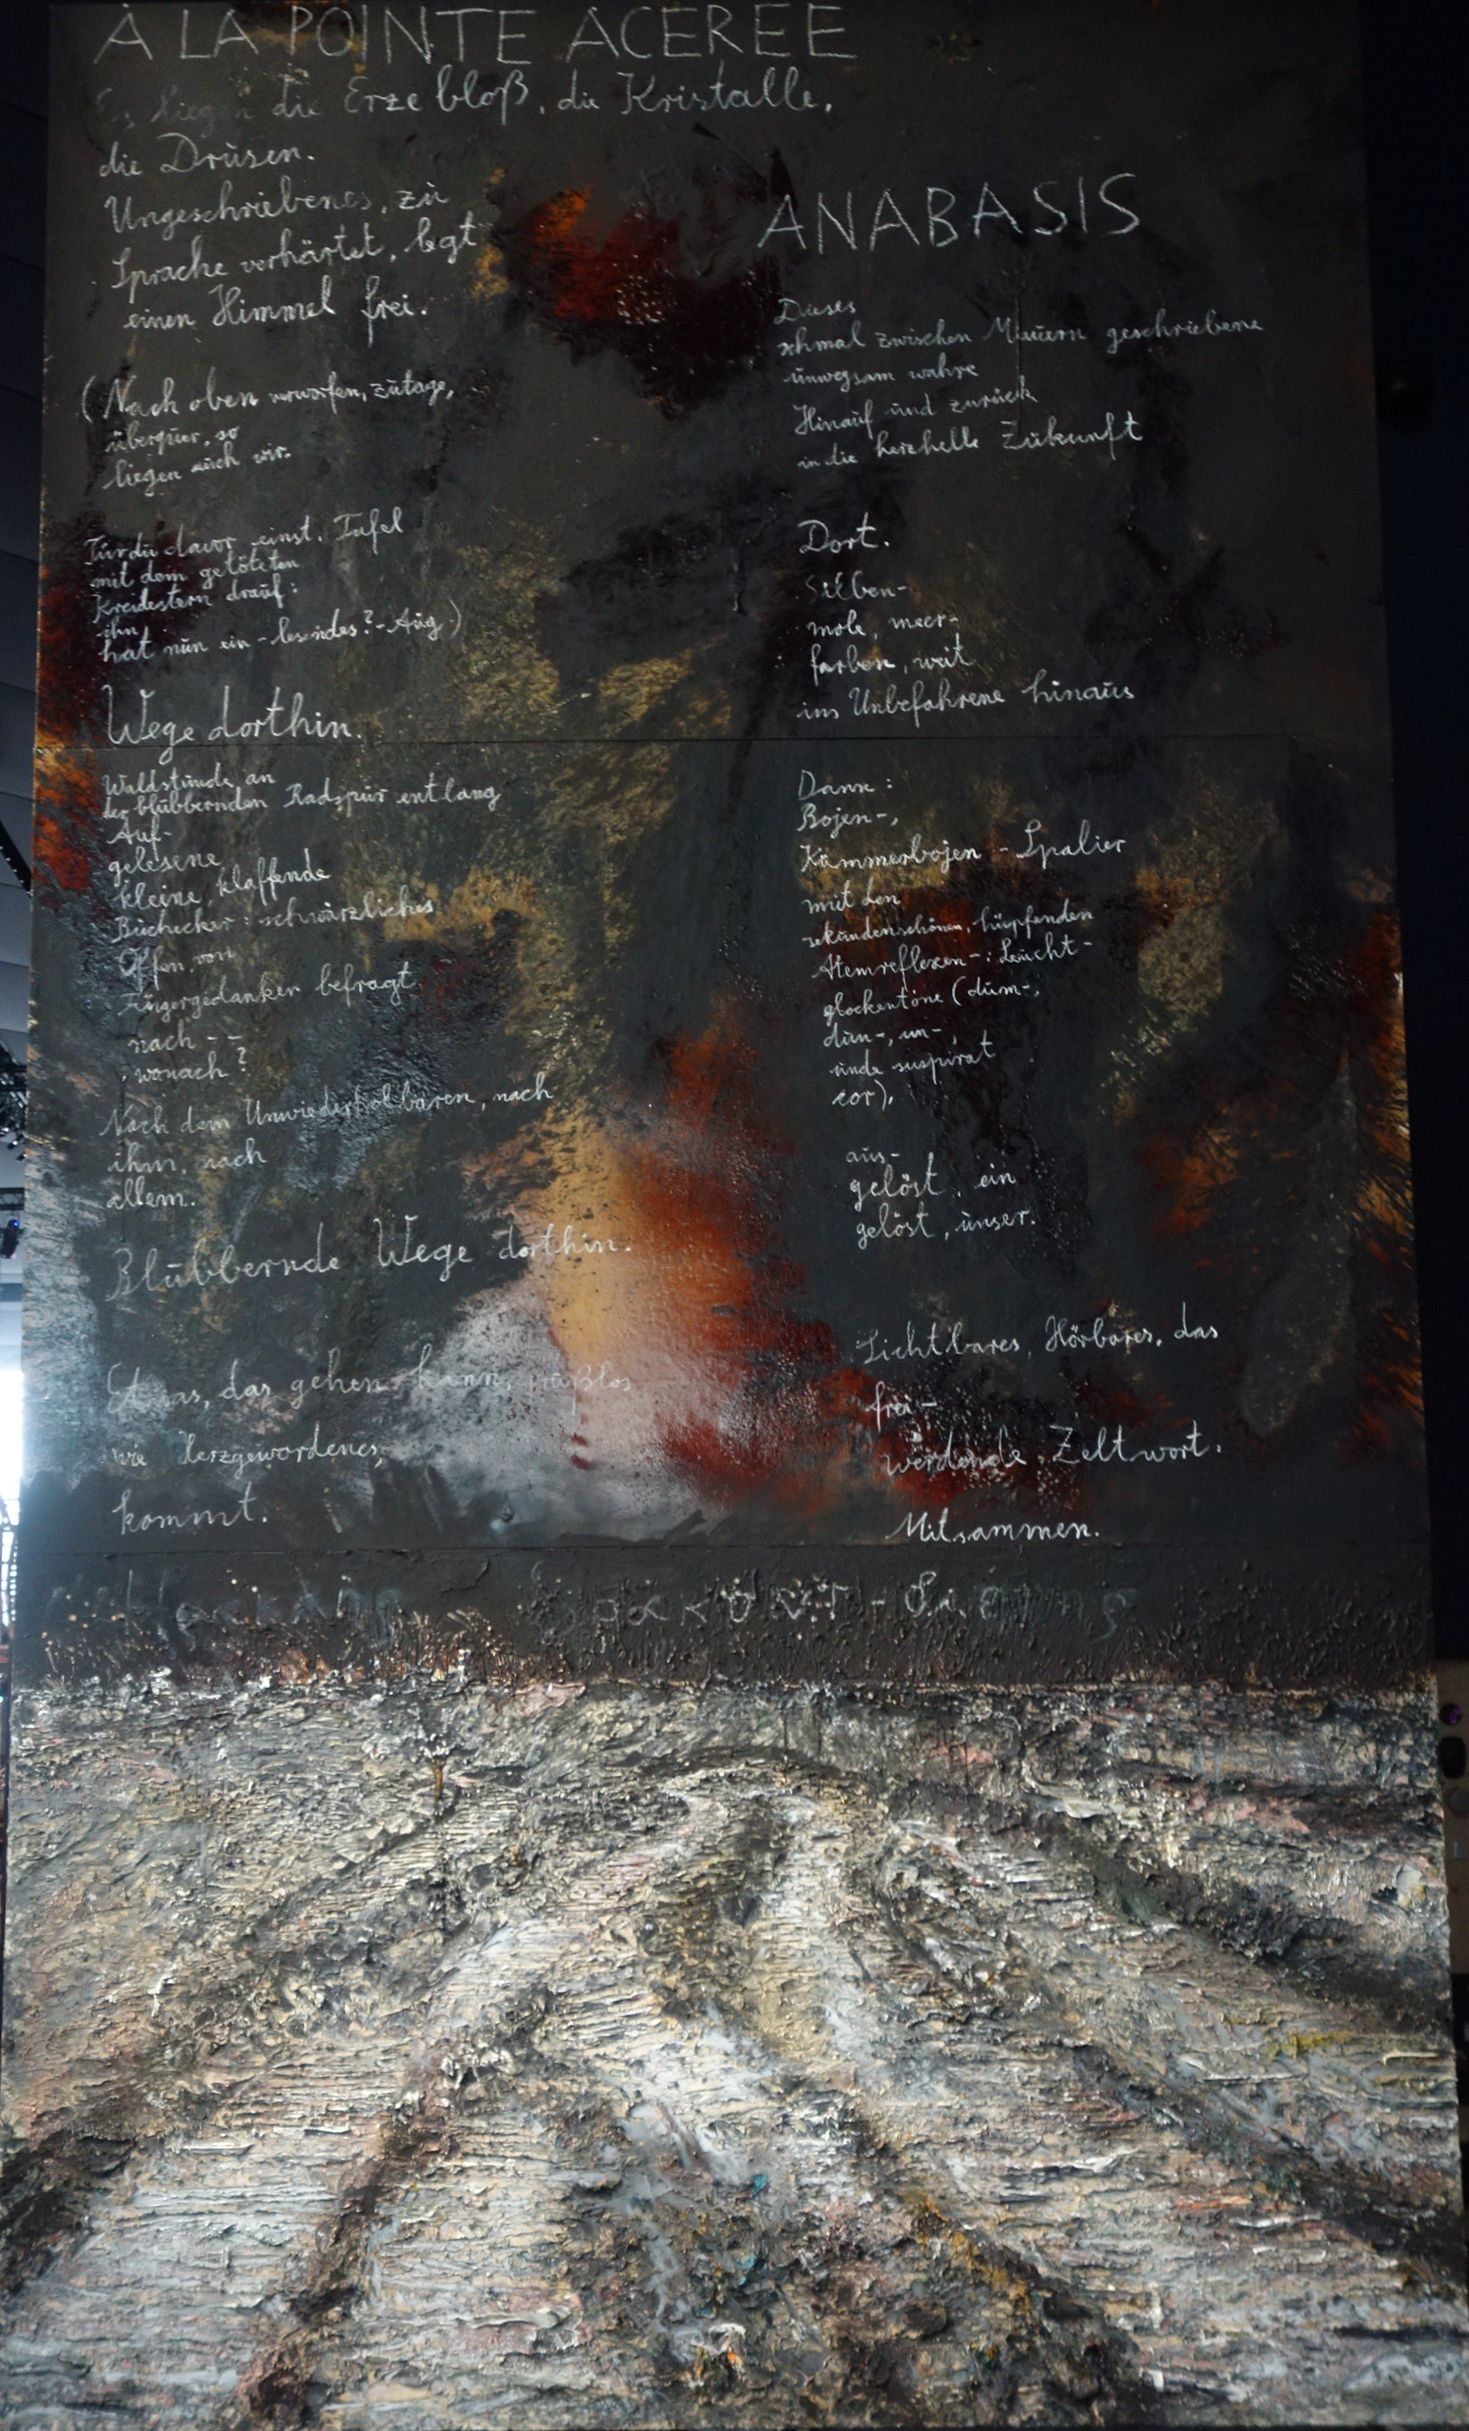 À LA POINTE ACEREE
Es liegen die Erze bloß, die Kristalle,
die Drusen.
Ungeschriebenes, zu
Sprache verhärtet, legt
einen Himmel frei.
(Nach oben verworfen, zutage,
überquer, so
liegen auch wir.
Tür du davor einst, Tafel
mit dem getöteten
Kreidestern drauf:
ihn
hat nun ein - lesendes? - Aug)
Wege dorthin.
Waldstunde an
der blubbernden Radspur entlang
Auf-
gelesene
kleine, klaffende
Buchecker: schwärzliches
Offen, von
Fingergedanken befragt
nach - -
wonach?
Nach dem Unwiederholbaren, nach
ihm, nach
allem.
Blubbernde Wege dorthin.
Etwas, das gehen kann, grußlos
wie Herzgewordenes,
kommt.
ANABASIS
Dieses
schmal zwischen Mauern geschriebene
unwegsam wahre
Hinauf und zurück
in die herzhelle Zukunft
Dort.
Silben-
mole, meer-
farben, weit
ins Unbefahrene hinaus
Dann:
Bojen-,
Kummerbojen - Spalier
mit den
sekundenschönen, hüpfenden
Atemreflexen-: Leucht-
glockentöne (dum-,
dun-, un-,
unde suspirat
cor),
aus-
gelöst, ein
gelöst, unser.
Sichtbares, Hörbares, das
frei-
werdende Zeltwort.
Mitsammen.